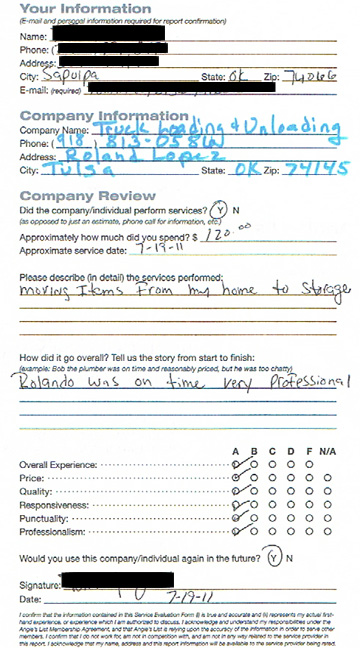 Your Information
(E-mail and personal information required for report confirmation)
Name:
Phone: (
Address:
City: Sapulpa State: OK Zip: 74066
E-mail: (required)
Company Information
Company Name: Truck Loading & Unloading
Phone: (918) 813-0586
Address: Roland Lopez
City: Tulsa State: OK Zip: 74145
Company Review
Did the company/individual perform services? Y N
(as opposed to just an estimate, phone call for information, etc.)
Approximately how much did you spend? $ 120.00
Approximate service date: 7-19-11
Please describe (in detail) the services performed:
moving Items From my home to Storage
How did it go overall? Tell us the story from start to finish:
(example: Bob the plumber was on time and reasonably priced, but he was too chatty)
Rolando was on time very Professional
A B C D F N/A
Overall Experience:
Price:
Quality:
Responsiveness:
Punctuality:
Professionalism:
Would you use this company/individual again in the future? Y N
Signature:
Date: 7-19-11
I confirm that the information contained in this Service Evaluation Form (i) is true and accurate and (ii) represents my actual first-
hand experience, or experience which I am authorized to discuss. I acknowledge and understand my responsibilities under the
Angie's List Membership Agreement, and that Angie's List is relying upon the accuracy of the information in order to serve other
members. I confirm that I do not work for, am not in competition with, and am not in any way related to the service provider in
this report. I acknowledge that my name, address and this report information will be available to the service provider being rated.